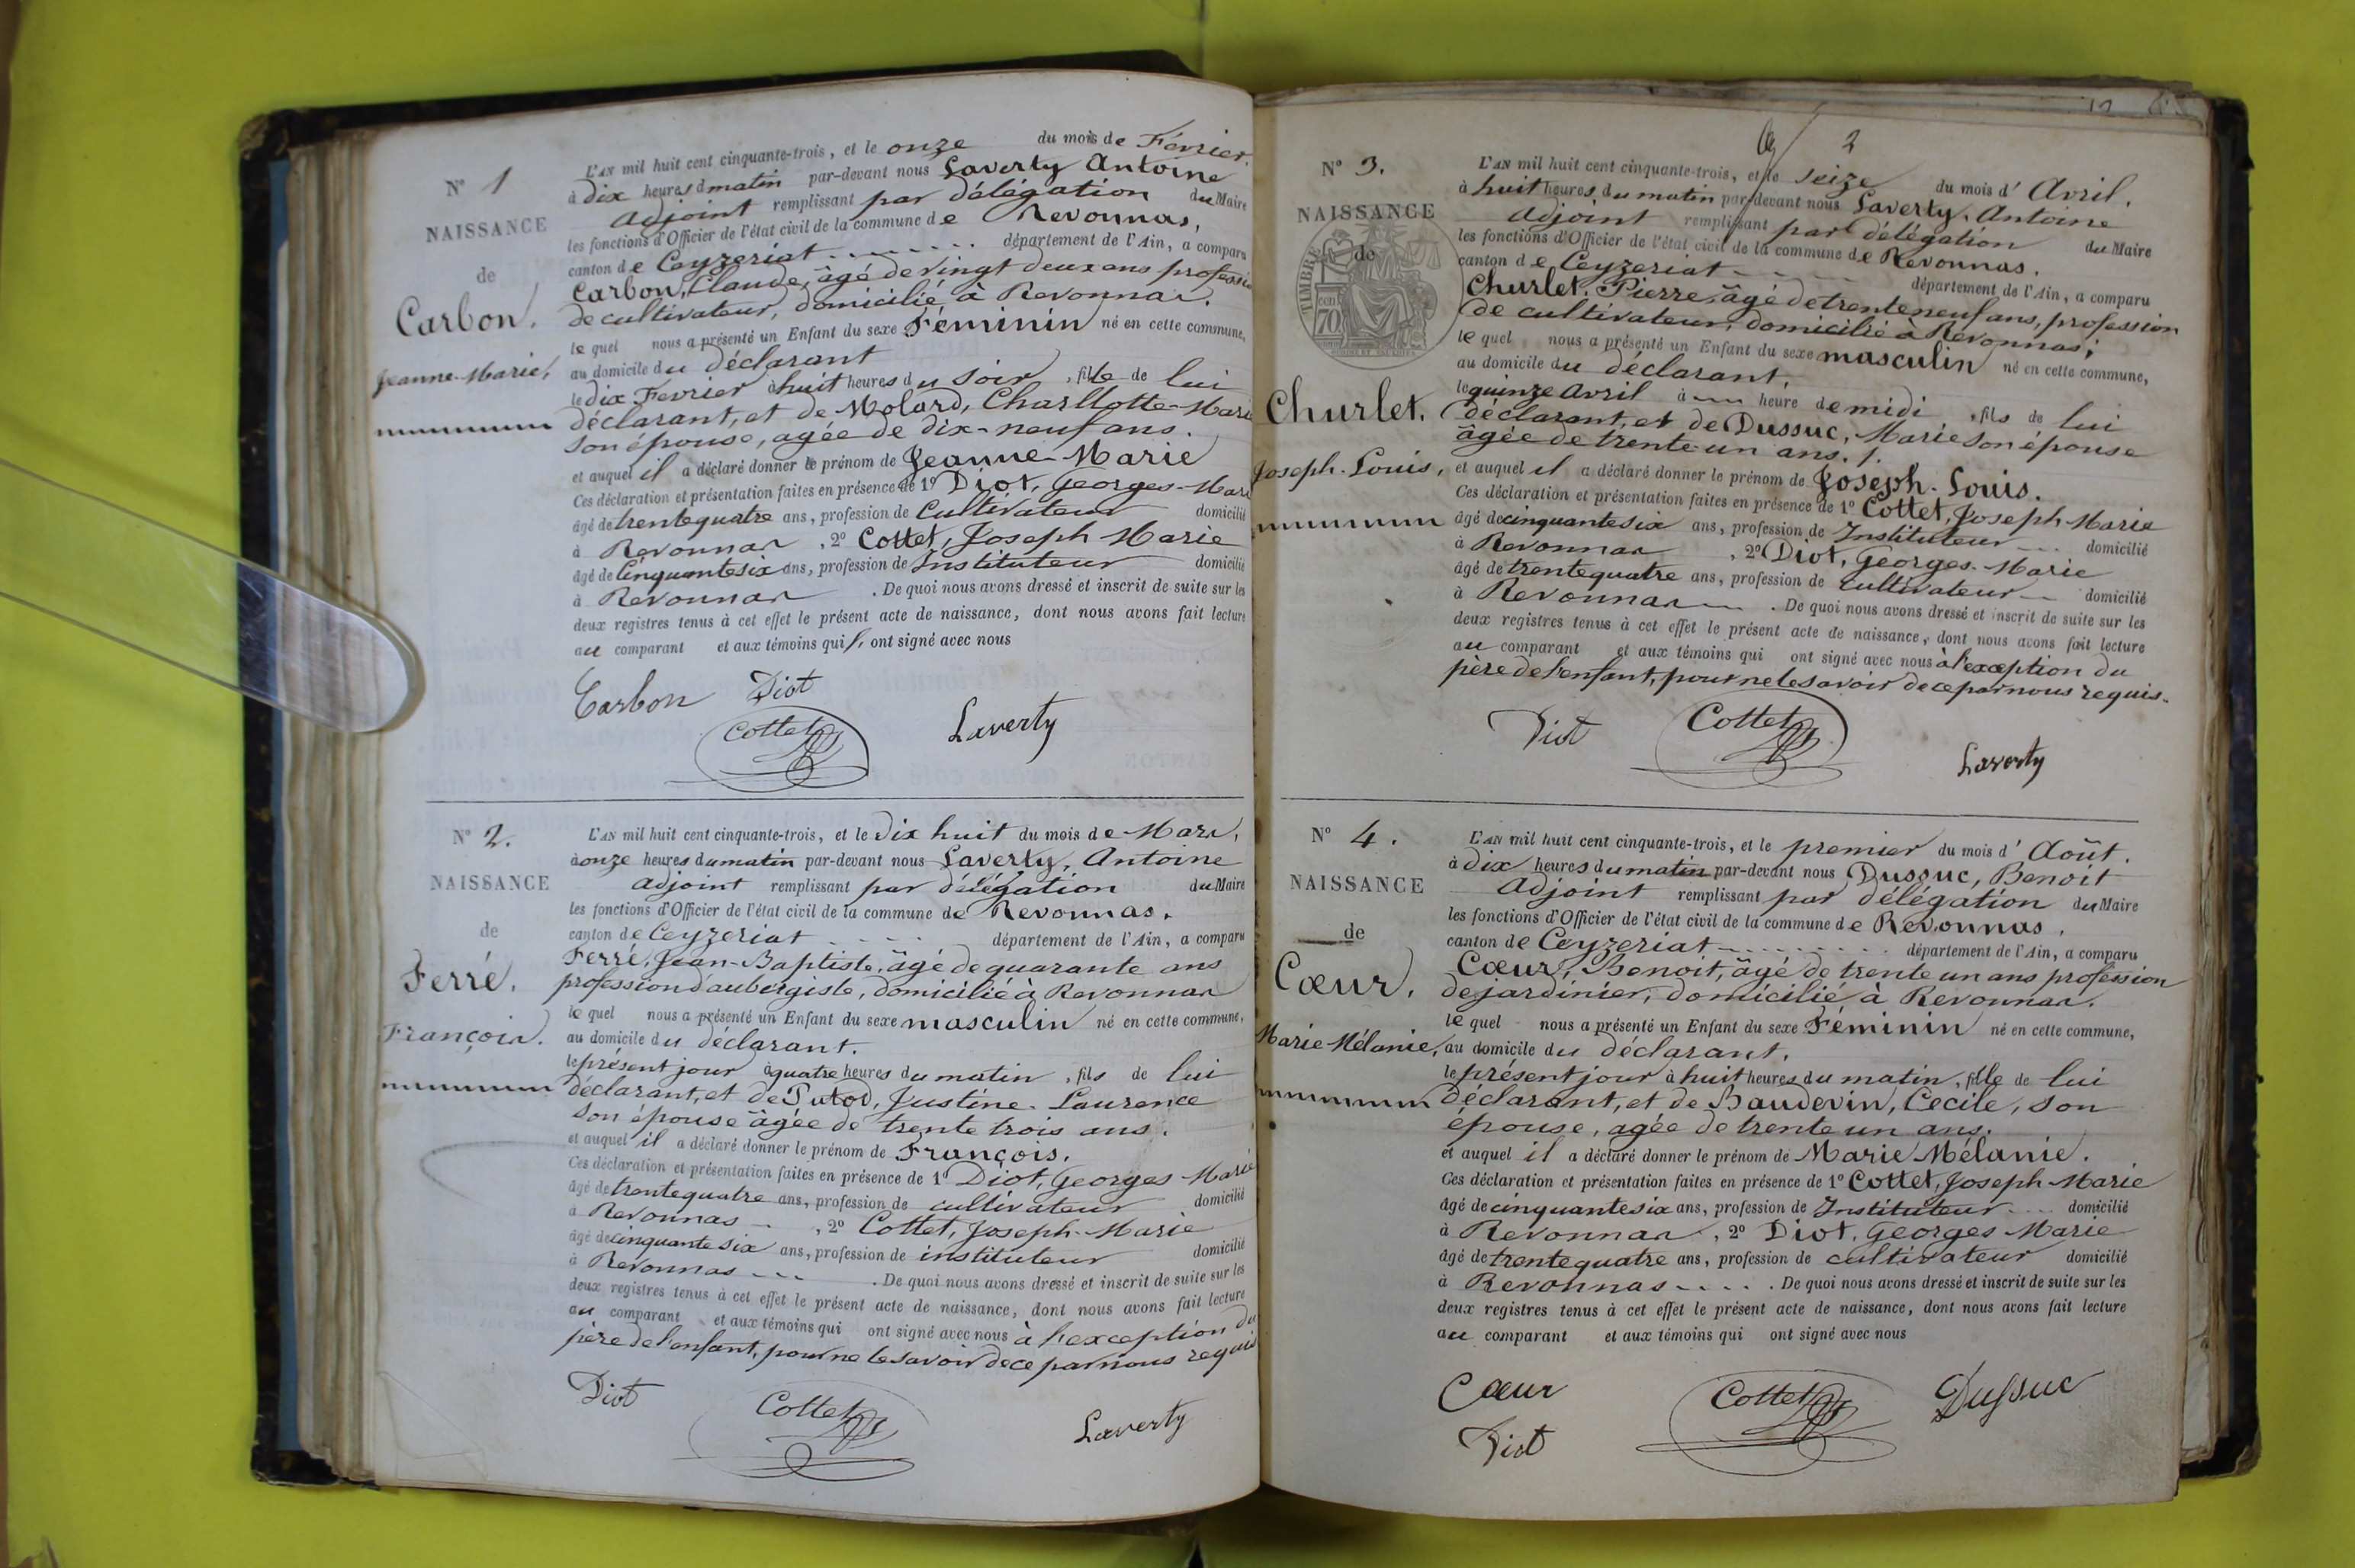 N° 1
NAISSANCE
de
Carbon.
Jeanne-Marie,
L'AN mil huit cent cinquante-trois, et le onze du mois de Février.
à dix heures du matin par-devant nous Laverty Antoine
adjoint remplissant par délégation du Maire
les fonctions d'Officier de l'état civil de la commune de Revonnas,
canton de Ceyzeriat département de l'Ain, a comparu
Carbon, Claude, âgé de vingt deux ans profession
de cultivateur, domicilié à Revonnas.
le quel nous a présenté un Enfant du sexe Féminin né en cette commune,
au domicile du déclarant
le dix Fevrier à huit heures du soir, fille de lui
déclarant, et de Molard, Charllotte-Marie
son épouse, agée de dix-neuf ans.
et auquel il a déclaré donner le prénom de Jeanne-Marie
Ces déclaration et présentation faites en présence de 1° Diot, Georges-Marie
âgé de trente quatre ans, profession de Cultivateur domicilié
à Revonnas, 2° Cottet, Joseph Marie
âgé de Cinquante six ans, profession de Instituteur domicilié
à Revonnas. De quoi nous avons dressé et inscrit de suite sur les
deux registres tenus à cet effet le présent acte de naissance, dont nous avons fait lecture
au comparant et aux témoins qui ont signé avec nous
Carbon Diot
Cottet Laverty
N° 2.
NAISSANCE
de
Ferré.
François.
L'AN mil huit cent cinquante-trois, et le dix huit du mois de Mars,
à onze heures du matin par-devant nous Laverty, Antoine
adjoint remplissant par délégation du Maire
les fonctions d'Officier de l'état civil de la commune de Revonnas.
canton de Ceyzeriat département de l'Ain, a comparu
Ferré, Jean-Baptiste, âgé de quarante ans
profession d'aubergiste, domicilié à Revonnas
le quel nous a présenté un Enfant du sexe masculin né en cette commune,
au domicile du déclarant.
le présent jour à quatre heures du matin, fils de lui
déclarant, et de Putod, Justine-Laurence
son épouse âgée de trente trois ans.
et auquel il a déclaré donner le prénom de François.
Ces déclaration et présentation faites en présence de 1° Diot, Georges Marie
âgé de trente quatre ans, profession de cultivateur domicilié
à Revonnas, 2° Cottet, Joseph-Marie
âgé de cinquante six ans, profession de instituteur domicilié
à Revonnas. De quoi nous avons dressé et inscrit de suite sur les
deux registres tenus à cet effet le présent acte de naissance, dont nous avons fait lecture
au comparant et aux témoins qui ont signé avec nous à l'exception du
père de l'enfant, pour ne le savoir de ce par nous requis
Diot Cottet Laverty
2
N° 3.
NAISSANCE
de
TIMBRE
70
Churlet.
Joseph-Louis,
L'AN mil huit cent cinquante-trois, et le seize du mois d'Avril.
à huit heures du matin par-devant nous Laverty, Antoine
adjoint remplissant par délégation du Maire
les fonctions d'Officier de l'état civil de la commune de Revonnas.
canton de Ceyzeriat département de l'Ain, a comparu
Churlet, Pierre, âgé de trente neuf ans, profession
de cultivateur, domicilié à Revonnas;
le quel nous a présenté un Enfant du sexe masculin né en cette commune,
au domicile du déclarant.
le quinze Avril à heure de midi, fils de lui
déclarant, et de Dussuc, Marie son épouse
âgée de trente un ans.
et auquel il a déclaré donner le prénom de Joseph-Louis.
Ces déclaration et présentation faites en présence de 1° Cottet, Joseph Marie
âgé de cinquante six ans, profession de Instituteur domicilié
à Revonnas, 2° Diot, Georges-Marie
âgé de trente quatre ans, profession de cultivateur domicilié
à Revonnas. De quoi nous avons dressé et inscrit de suite sur les
deux registres tenus à cet effet le présent acte de naissance, dont nous avons fait lecture
au comparant et aux témoins qui ont signé avec nous à l'exception du
père de l'enfant, pour ne le savoir de ce par nous requis.
Diot Cottet Laverty
N° 4.
NAISSANCE
de
Cœur.
Marie-Mélanie,
L'AN mil huit cent cinquante-trois, et le premier du mois d'Août.
à dix heures du matin par-devant nous Dussuc, Benoit
adjoint remplissant par délégation du Maire
les fonctions d'Officier de l'état civil de la commune de Revonnas,
canton de Ceyzeriat département de l'Ain, a comparu
Cœur, Benoit, âgé de trente un ans profession
de jardinier, domicilié à Revonnas.
le quel nous a présenté un Enfant du sexe Féminin né en cette commune,
au domicile du déclarant.
le présent jour à huit heures du matin, fille de lui
déclarant, et de Baudevin, Cecile, son
épouse, agée de trente un ans.
et auquel il a déclaré donner le prénom de Marie Mélanie.
Ces déclaration et présentation faites en présence de 1° Cottet, Joseph-Marie
âgé de cinquante six ans, profession de Instituteur domicilié
à Revonnas, 2° Diot, Georges Marie
âgé de trente quatre ans, profession de cultivateur domicilié
à Revonnas. De quoi nous avons dressé et inscrit de suite sur les
deux registres tenus à cet effet le présent acte de naissance, dont nous avons fait lecture
au comparant et aux témoins qui ont signé avec nous
Cœur Cottet Dussuc
Diot